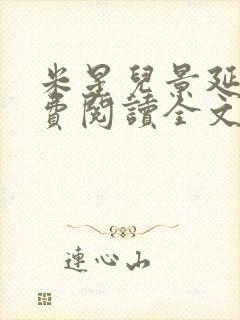 米星兒景延
費閱讀全文
連心山